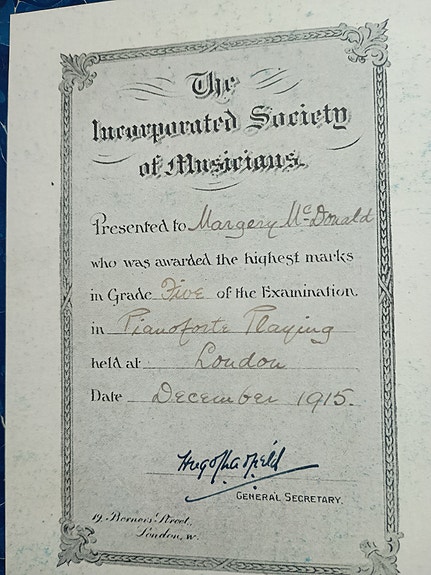 The
Incorporated Society
of Musicians.
Presented to Margery McDonald
who was awarded the highest marks
in Grade Five of the Examination
in Pianoforte Playing
held at London
Date December 1915.
GENERAL SECRETARY.
19, Berners Street,
London, W.